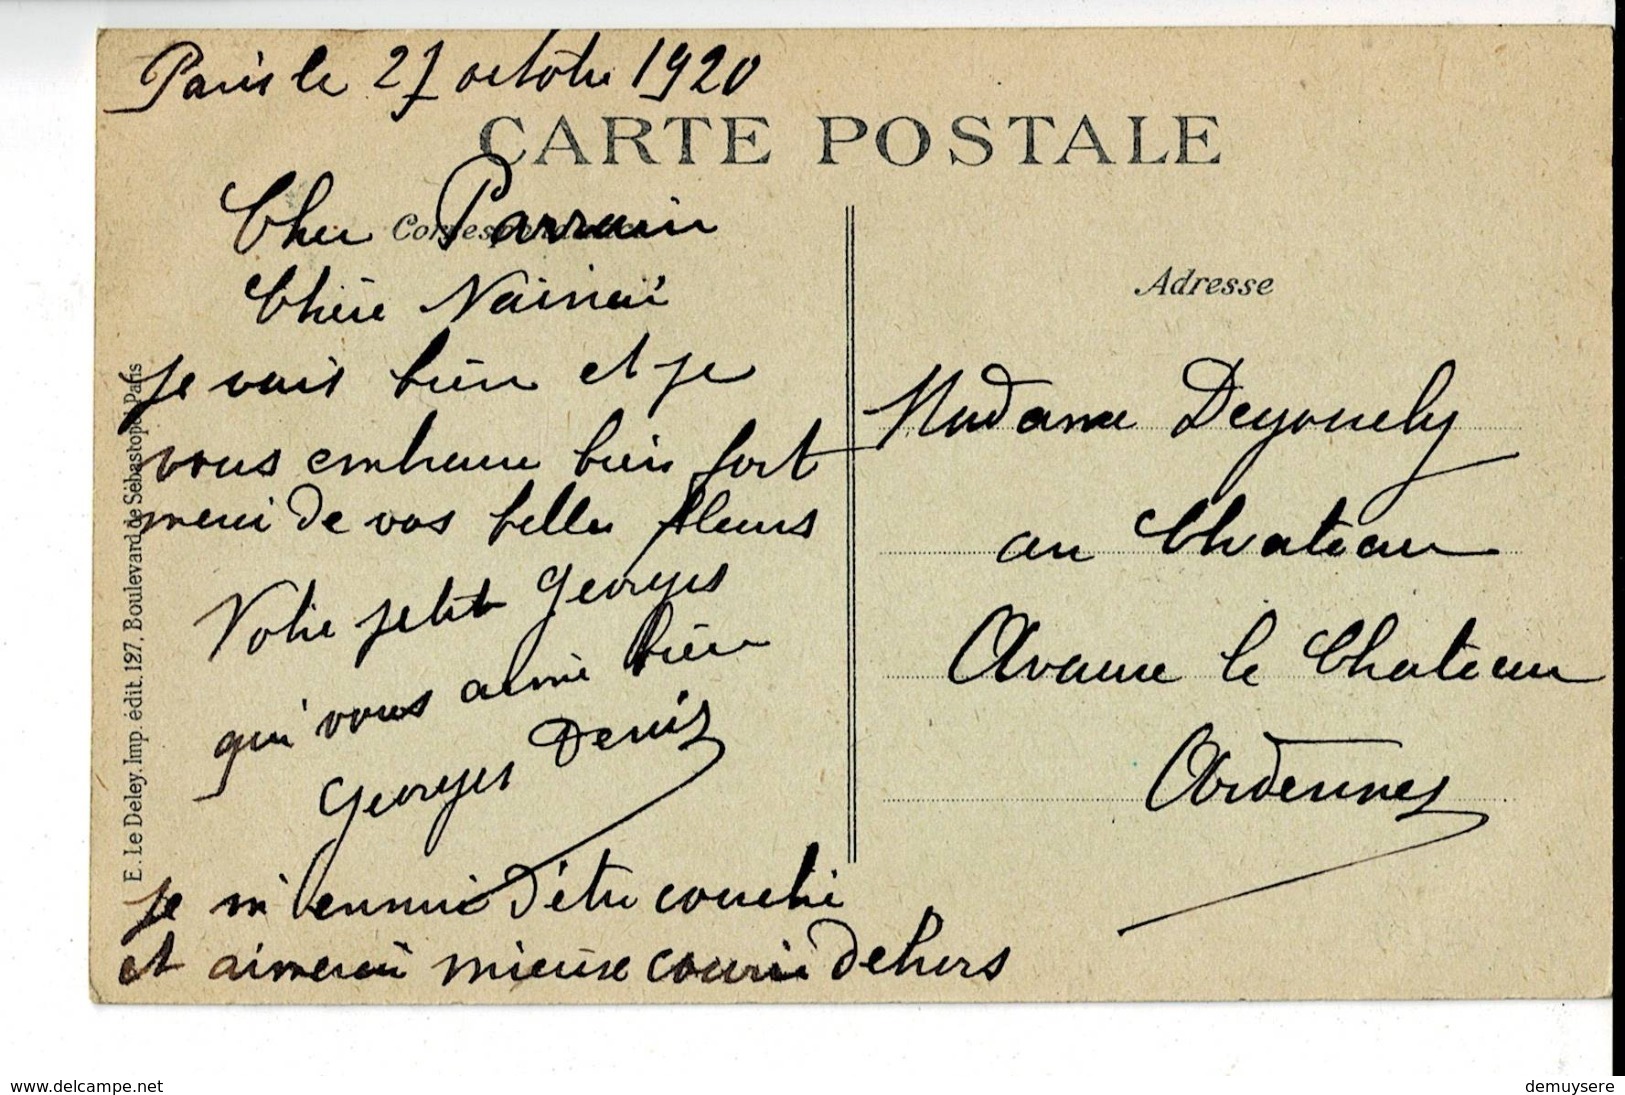 Paris le 27 octobre 1920
CARTE POSTALE
Cher Parrain
Correspondance
Chère
je vais bien et je
vous embrasse bien fort
merci de vos belles fleurs
Votre petit Georges
qui vous aime bien
Georges Denis
je m'ennuie d'être couché
et aimerai mieux courir dehors
Adresse
Madame
au Chateau
le Chateau
Ardennes
E. Le Deley, Imp. édit. 127, Boulevard de Sébastopol, Paris
www.delcampe.net
demuysere